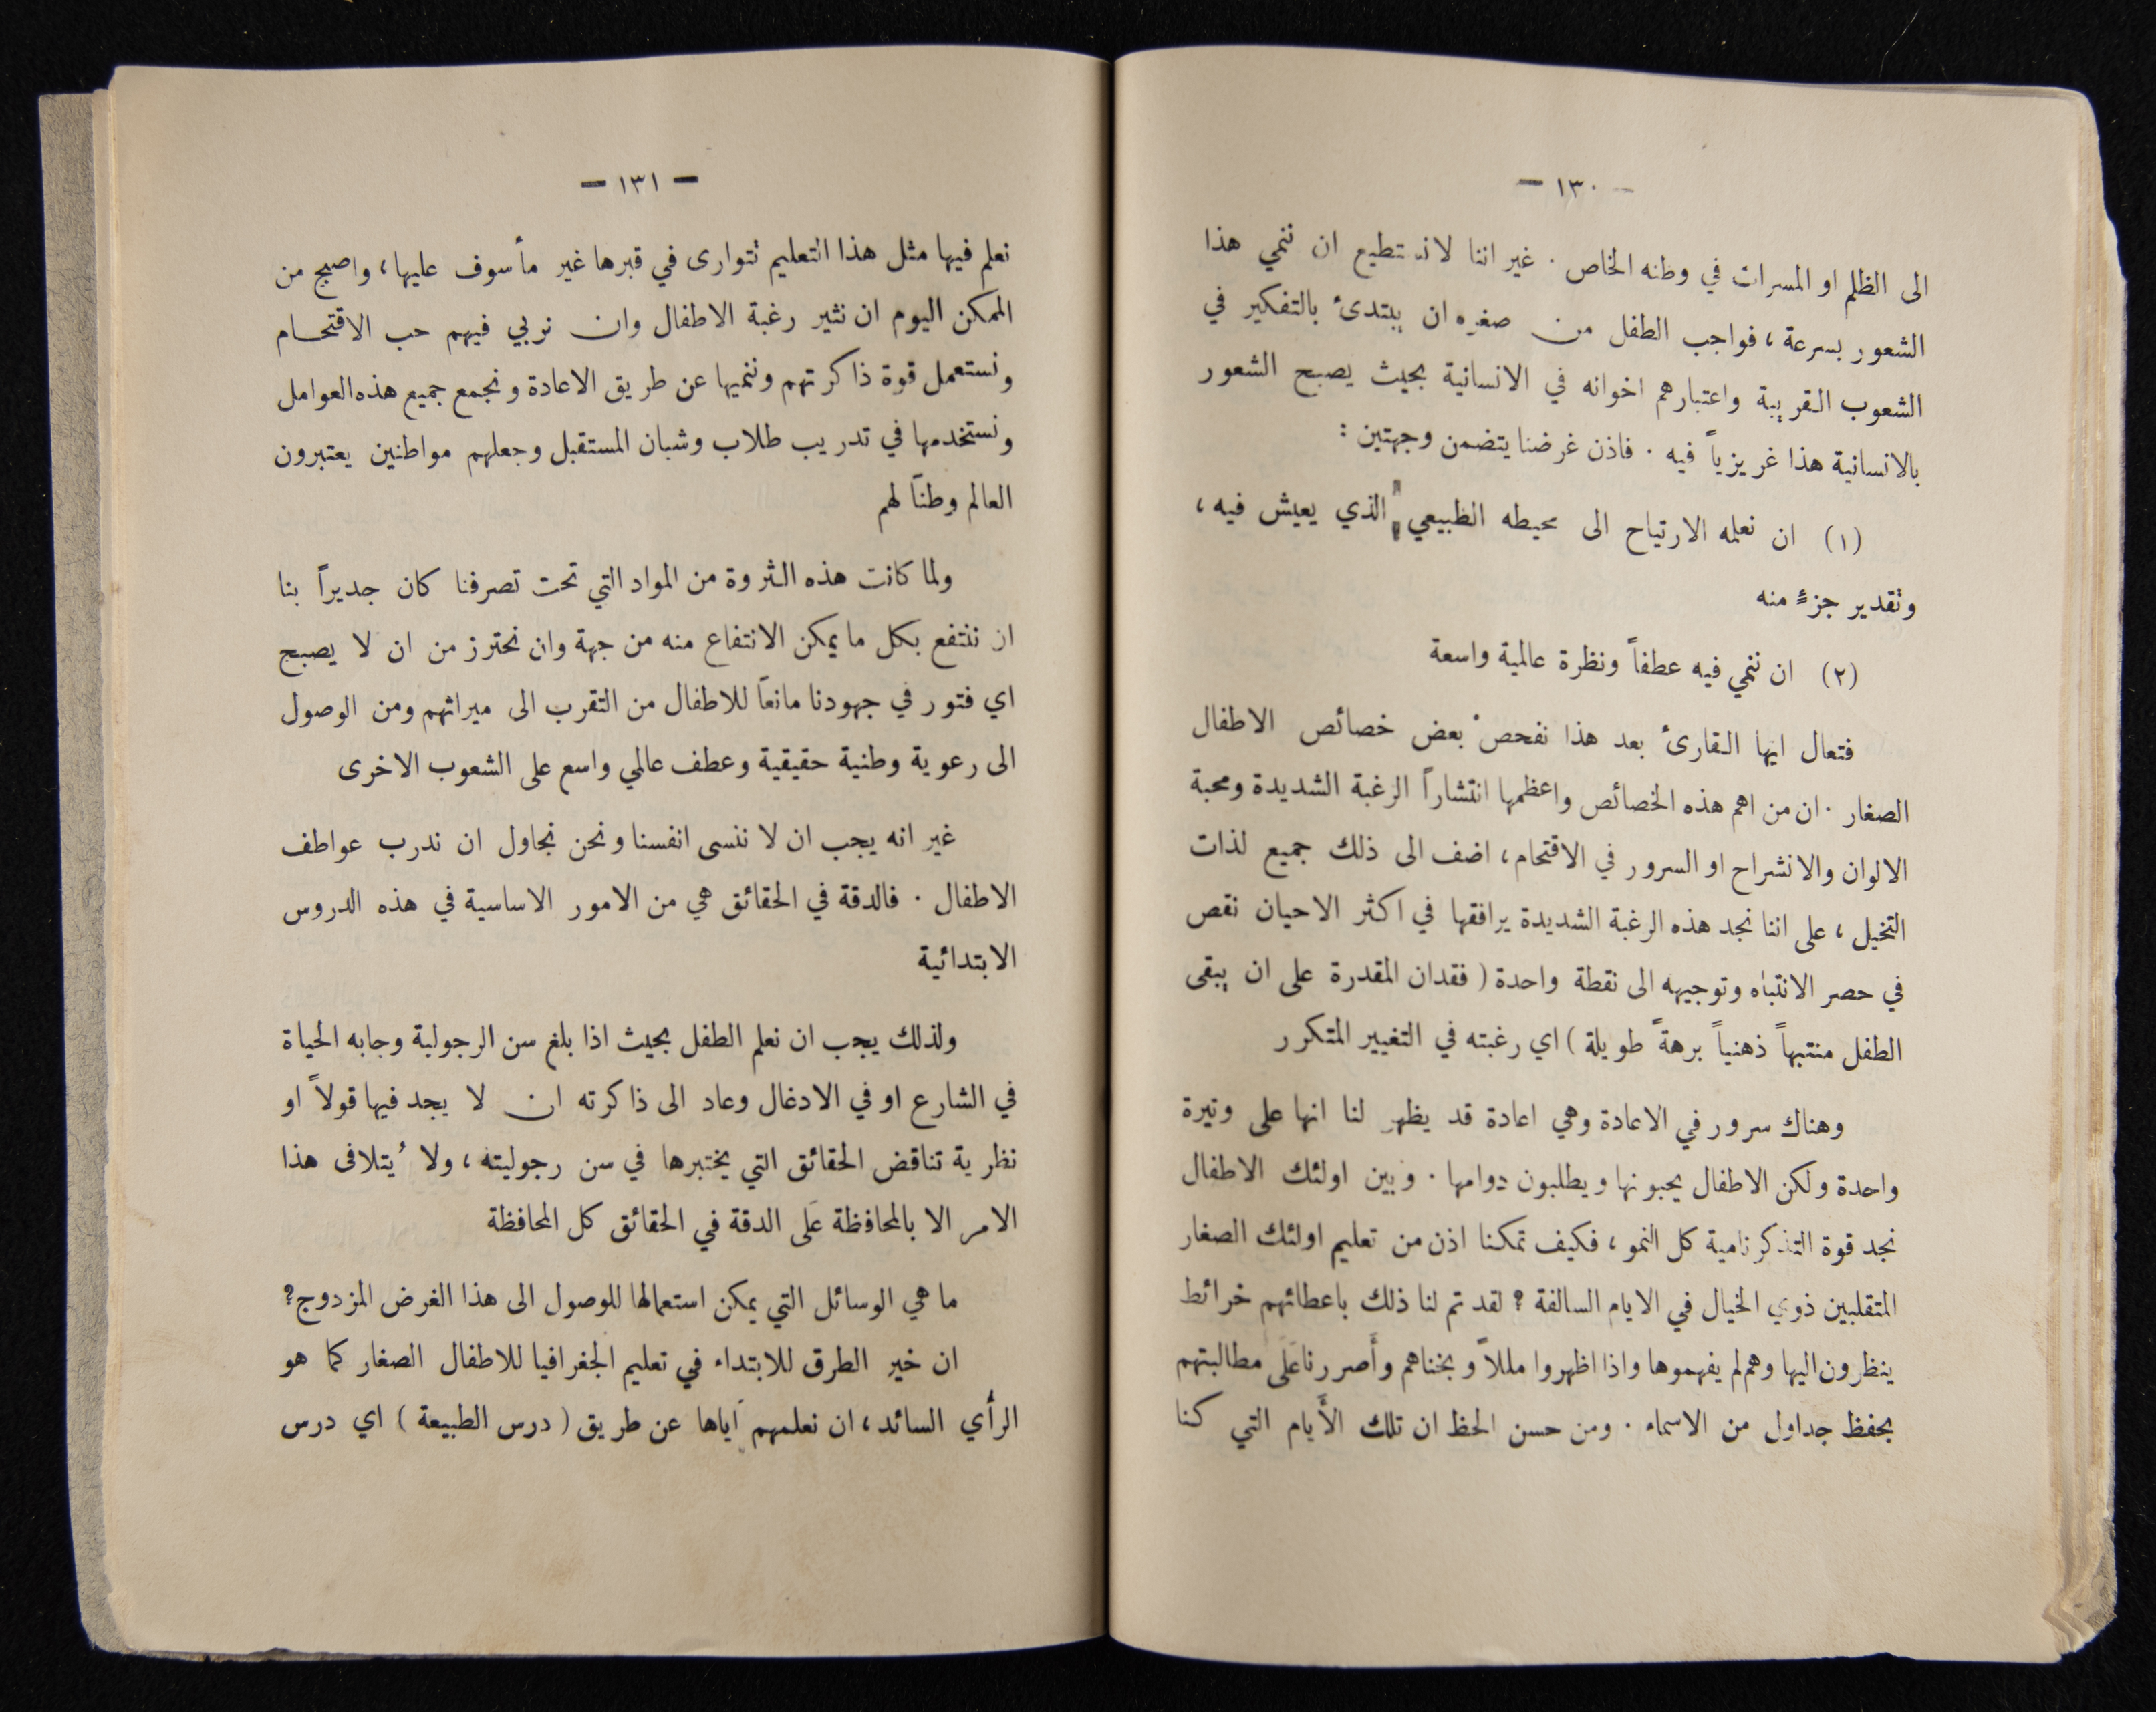 — ١٣٠ —
الى الظلم او المسرات في وطنه الخاص . غير اننا لا نستطيع ان ننمي هذا
الشعور بسرعة ، فواجب الطفل من صغره ان يبتدئ بالتفكير في
الشعوب القريبة واعتبارهم اخوانه في الانسانية بحيث يصبح الشعور
بالانسانية هذا غريزياً فيه . فاذن غرضنا يتضمن وجهتين :
(١) ان نعلمه الارتياح الى محيطه الطبيعي الذي يعيش فيه ،
وتقدير جزءٍ منه
(٢) ان ننمي فيه عطفاً ونظرة عالمية واسعة
فتعال ايها القارئ بعد هذا نفحصْ بعض خصائص الاطفال
الصغار . ان من اهم هذه الخصائص واعظمها انتشاراً الرغبة الشديدة ومحبة
الالوان والانشراح او السرور في الاقتحام ، اضف الى ذلك جميع لذات
التخيل ، على اننا نجد هذه الرغبة الشديدة يرافقها في اكثر الاحيان نقص
في حصر الانتباه وتوجيهه الى نقطة واحدة ( فقدان المقدرة على ان يبقى
الطفل منتبهاً ذهنياً برهةً طويلة ) اي رغبته في التغيير المتكرر
وهناك سرور في الاعادة وهي اعادة قد يظهر لنا انها على وتيرة
واحدة ولكن الاطفال يحبونها ويطلبون دوامها . وبين اولئك الاطفال
نجد قوة التذكر نامية كل النمو ، فكيف تمكنا اذن من تعليم اولئك الصغار
المتقلبين ذوي الخيال في الايام السالفة ؟ لقد تم لنا ذلك باعطائهم خرائط
ينظرون اليها وهم لم يفهموها واذا اظهروا مللاً وبخناهم وأَصررنا عَلَى مطالبتهم
بحفظ جداول من الاسماء . ومن حسن الحظ ان تلك الأَيام التي كنا
— ١٣١ —
نعلم فيها مثل هذا التعليم تتوارى في قبرها غير مأسوف عليها ، واصبح من
الممكن اليوم ان نثير رغبة الاطفال وان نربي فيهم حب الاقتحـام
ونستعمل قوة ذاكرتهم وننميها عن طريق الاعادة ونجمع جميع هذه العوامل
ونستخدمها في تدريب طلاب وشبان المستقبل وجعلهم مواطنين يعتبرون
العالم وطناً لهم
ولما كانت هذه الثروة من المواد التي تحت تصرفنا كان جديراً بنا
ان ننتفع بكل ما يمكن الانتفاع منه من جهة وان نحترز من ان لا يصبح
اي فتور في جهودنا مانعاً للاطفال من التقرب الى ميراثهم ومن الوصول
الى رعوية وطنية حقيقية وعطف عالمي واسع على الشعوب الاخرى
غير انه يجب ان لا ننسى انفسنا ونحن نحاول ان ندرب عواطف
الاطفال . فالدقة في الحقائق هي من الامور الاساسية في هذه الدروس
الابتدائية
ولذلك يجب ان نعلم الطفل بحيث اذا بلغ سن الرجولية وجابه الحياة
في الشارع او في الادغال وعاد الى ذاكرته ان لا يجد فيها قولاً او
نظرية تناقض الحقائق التي يختبرها في سن رجوليته ، ولا يُتلافى هذا
الامر الا بالمحافظة عَلَى الدقة في الحقائق كل المحافظة
ما هي الوسائل التي يمكن استعمالها للوصول الى هذا الغرض المزدوج؟
ان خير الطرق للابتداء في تعليم الجغرافيا للاطفال الصغار كما هو
الرأي السائد ، ان نعلمهم اياها عن طريق ( درس الطبيعة ) اي درس